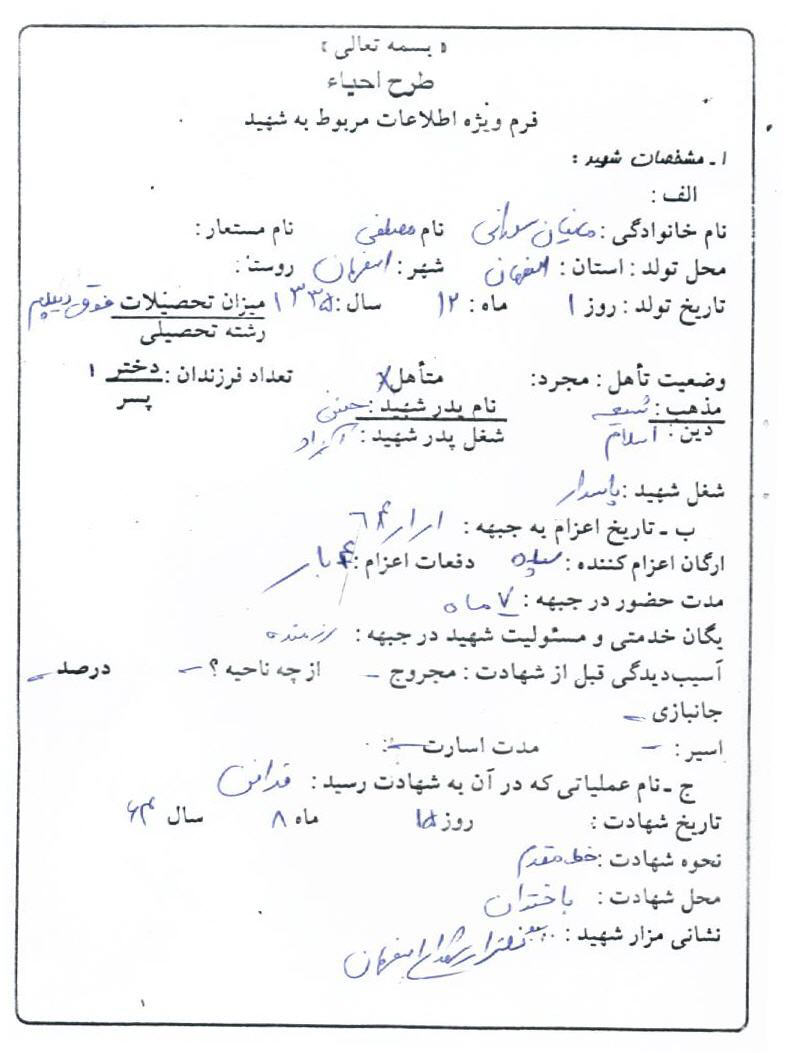 « بسمه تعالی »
طرح احیاء
فرم ویژه اطلاعات مربوط به شهید
۱ ـ مشخصات شهید :
الف :
نام خانوادگی : نام مصطفی نام مستعار :
محل تولد : استان : اصفهان شهر : اصفهان روستا :
تاریخ تولد : روز ۱ ماه : ۱۲ سال : ۱۳۳۵ میزان تحصیلات فوق دیپلم
رشته تحصیلی
وضعیت تأهل : مجرد : متأهل x تعداد فرزندان : دختر ۱
پسر
مذهب : شیعه نام پدر شهید :
دین : اسلام شغل پدر شهید : آزاد
شغل شهید : پاسدار
ب ـ تاریخ اعزام به جبهه :
ارگان اعزام کننده : سپاه دفعات اعزام : ۴ بار
مدت حضور در جبهه : ۷ ماه
یگان خدمتی و مسئولیت شهید در جبهه : رزمنده
آسیب‌دیدگی قبل از شهادت : مجروح – از چه ناحیه ؟ – درصد –
جانبازی –
اسیر : – مدت اسارت – :
ج ـ نام عملیاتی که در آن به شهادت رسید :
تاریخ شهادت : روز ۱۵ ماه ۸ سال ۶۴
نحوه شهادت : خط مقدم
محل شهادت : باختران
نشانی مزار شهید : گلزار شهدای اصفهان
۱